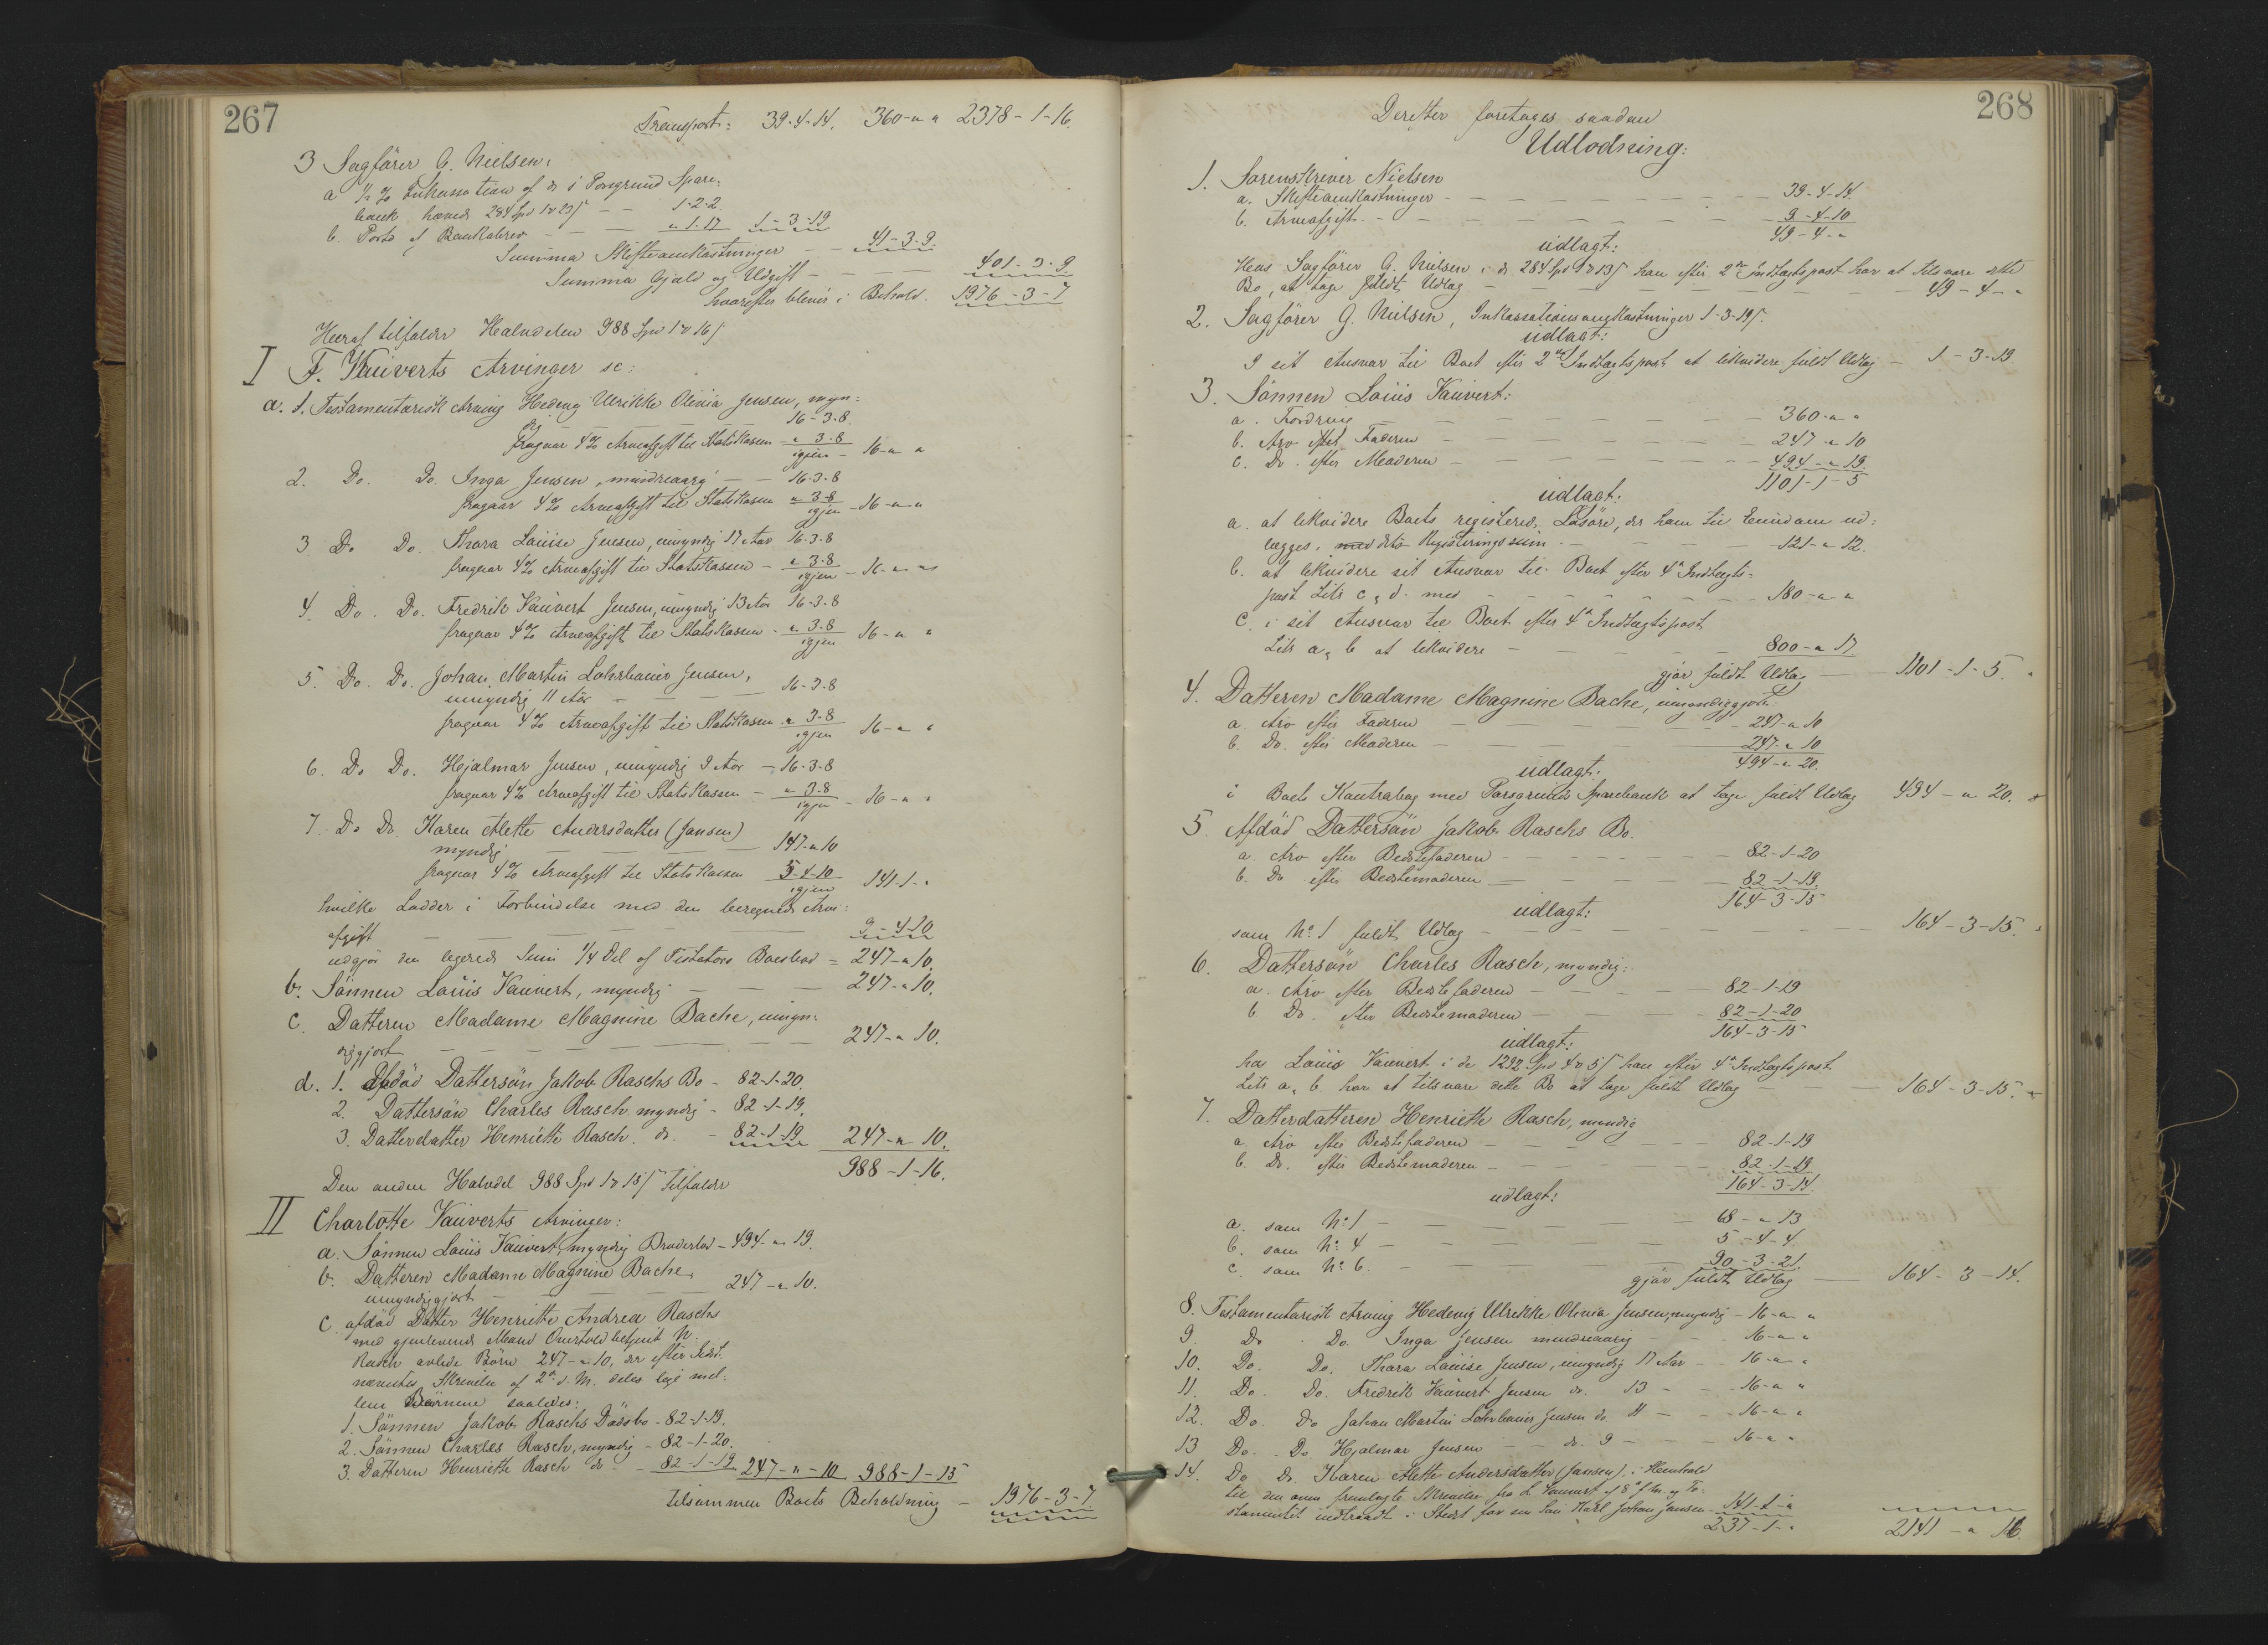 267
Transport: 39-4-14. 360-"-" 2378-1-16.
3 Sagförer G. Nielsen:
a ½ % Inkassation af de i Porsgrund Spare-
bank hævede 284 Spd 1 # 23 / - - 1-2-2.
b. Porto af Bankobrev - - - " 1-17 1-3-19
Summa Skifteomkostninger - - 41-3-9.
Summa Gjæld og Udgift - - - 401-3-9
hvorefter bliver i Behold. 1976-3-7
Heraf tilfalder Halvdelen 988 Spd 1 # 16 /
I F. Vauverts Arvinger sc:
a. 1. Testamentarisk Arving Hedevig Ulrikke Olivia Jensen, myn-
dig - - - 16-3-8.
fragaar 4% Arveafgift til Statskassen - " 3-8
igjen - 16-" "
2. Do. Do. Inga Jensen, mindreaarig - - 16-3-8
fragaar 4% Arveafgift til Statskassen " 3-8
igjen - 16-"-"
3. Do Do. Thora Louise Jensen, umyndig 17 Aar 16-3-8
fragaar 4% Arveafgift til Statskassen - " 3-8
igjen - 16-" "
4. Do. Do. Fredrik Vauvert Jensen, umyndig 13 Aar 16-3-8
fragaar 4% Arveafgift til Statskassen - " 3-8
igjen 16-" "
5. Do. Do. Johan Martin Lohrbauer Jensen,
umyndig 11 Aar - - - 16-3-8
fragaar 4% Arveafgift til Statskassen " 3-8
igjen 16-" "
6. Do Do. Hjalmar Jensen, umyndig 9 Aar - 16-3-8
fragaar 4% Arveafgift til Statskassen - " 3-8
igjen - 16-" "
7. Do Do. Karen Alette Andersdatter (Jansen)
myndig - - - 147-"-10
fragaar 4% Arveafgift til Statskassen 5-4-10
igjen 141-1-"
hvilke Lodder i Forbindelse med den beregnede Arve-
afgift - - - 9-4-10
udgjør den legerede Sum 1/4 Del af Testators Boeslod = 247-"-10.
b. Sönnen Louis Vauvert, myndig - - - 247-"-10.
c. Datteren Madame Magnine Bache, umyn-
diggjort - - - 247-"-10.
d. 1. Afdöd Dattersön Jakob Raschs Bo - 82-1-20.
2. Dattersön Charles Rasch myndig - 82-1-19.
3. Datterdatter Henriette Rasch. do. - 82-1-19 247-"-10.
988-1-16.
Den anden Halvdel 988 Spd 1 # 15 / tilfalder
II Charlotte Vauverts Arvinger:
a. Sönnen Louis Vauvert, myndig Broderlod - 494-"-19.
b. Datteren Madame Magnine Bache,
umyndiggjort - - - 247-"-10.
c. afdöd Datter Henriette Andrea Raschs
med gjenlevende Mand Overtoldbetjent N.
Rasch avlede Börn 247-"-10, der efter Sidst-
nævntes Skrivelse af 2den d. M. deles lige mel-
lem Börnene saaledes:
1. Sönnen Jakob Raschs Dödsbo - 82-1-19.
2. Sönnen Charles Rasch, myndig - 82-1-20.
3. Datteren Henriette Rasch do - 82-1-19 247-"-10 988-1-15
tilsammen Boets Beholdning - 1976-3-7
268
Derefter foretages saadan
Udlodning:
1. Sorenskriver Nielsen
a. Skifteomkostninger - - - 39-4-14.
b. Arveafgift - - - 9-4-10
49-4-"
udlagt:
Hos Sagförer G. Nielsen i de 284 Spd 1 # 23 / han efter 2den Indtægtspost har at tilsvare dette
Bo, at tage fuldt Udlæg - - - 49-4-"
2. Sagförer G. Nielsen, Inkassationsomkostninger 1-3-19 /.
udlagt:
I sit Ansvar til Boet efter 2den Indtægtspost at likvidere fuldt Udlæg - 1-3-19
3. Sönnen Louis Vauvert:
a. Fordring - - - 360-" "
b. Arv efter Faderen - - - 247-"-10
c. Do. efter Moderen - - - 494-"-19.
1101-1-5
udlagt.
a. at likvidere Boets registrerede Lösöre, der ham til Eiendom ud-
lægges, med dets Registreringssum - - - 121-"-12.
b. at likvidere sit Ansvar til Boet efter 4de Indtægts-
post Litr c & d. med - - - 180-" "
c. i sit Ansvar til Boet efter 4de Indtægtspost
Litr a & b at likvidere - - - 800-"-17
gjör fuldt Udlæg - - 1101-1-5.
4. Datteren Madame Magnine Bache, umyndiggjort.
a. Arv efter Faderen - - - 247-"-10
b. Do. efter Moderen - - - 247-"-10
494-"-20.
udlagt:
i Boets Kontrabog med Porsgrunds Sparebank at tage fuldt Udlæg 494-"-20.
5. Afdöd Dattersön Jakob Raschs Bo.
a. Arv efter Bedstefaderen - - - 82-1-20
b. Do efter Bedstemoderen - - - 82-1-19.
164-3-15
udlagt:
som No. 1 fuldt Udlæg - - - 164-3-15.
6. Dattersön Charles Rasch, myndig:
a. Arv efter Bedstefaderen - - - 82-1-19
b Do. efter Bedstemoderen - - - 82-1-20
164-3-15
udlagt:
hos Louis Vauvert i de 1292 Spd 4 # 5 / han efter 4de Indtægtspost
Litr a & b har at tilsvare dette Bo at tage fuldt Udlæg - - - 164-3-15.
7. Datterdatteren Henriette Rasch, myndig
a. Arv efter Bedstefaderen - - - 82-1-19
b. Do. efter Bedstemoderen - - - 82-1-19
164-3-14
udlagt:
a. som No 1 - - - 68-"-13
b. som No. 4 - - - 5-4-4.
c. som No. 6. - - - 90-3-21.
gjör fuldt Udlæg - - 164-3-14.
8. Testamentarisk Arving Hedevig Ulrikke Olivia Jensen, myndig - 16-" "
9. Do Do. Inga Jensen mindreaarig - - 16-" "
10. Do. Do. Thora Louise Jensen, umyndig 17 Aar - - 16-" "
11. Do. Do. Fredrik Vauvert Jensen do. 13 - - 16-" "
12. Do. Do Johan Martin Lohrbauer Jensen do. 11 - - 16-" "
13 Do. Do. Hjalmar Jensen - do. 9 - - - 16-" "
14. Do do. Karen Alette Andersdatter (Jansen), i Henhold
til den ovenfremlagte Skrivelse fra L. Vauvert af 8de f. M. og Te-
stamentet indtraadt i Stedet for sin Sön Karl Johan Jansen - 141-1-"
237-1-" 2141-"-16.